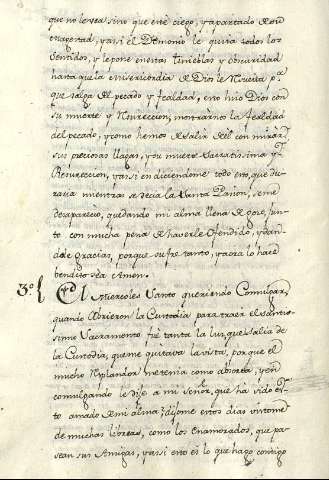 que no lo vea sino que esté ciego, y apartado de su
magestad, y assi el Demonio le quita todos los
sentidos, y le pone en tas tinieblas y obscuridad
hasta que la misericordia de Dios le Necita pª
que salga del pecado y fealdad, esto hizo Dios con
su muerte y Resureccion, mostrarnos la fealdad
del pecado, y como hemos de salir del con mirar
sus preciosas llagas, y su muerte Sacratissima y
Resureccion, y assi en diciendome todo esto, que du-
raria mientras se decia la Santa Passion, se me
desaparecio, quedando mi alma llena de gozo, jun-
to con mucha pena de haverle ofendido, y dan-
dole gracias, porque sufre tanto, y aora lo haré
bendito sea Amen.
3º El Miercoles Santo queriendo Comulgar,
quando abrieron la Custodia para traer el Santis-
simo Sacramento fué tanta la luz, que salia de
la Custodia, que me quitava la vista, porque el
mucho Resplandor me tenia como absorta, y en
comulgando le dije a mi Señor, que ha sido es-
to amado de mi alma? díjome estos dias visto me
de muchas libreas, como los enamorados, que pa-
sean sus Amigas, y assi esto es lo que hago contigo